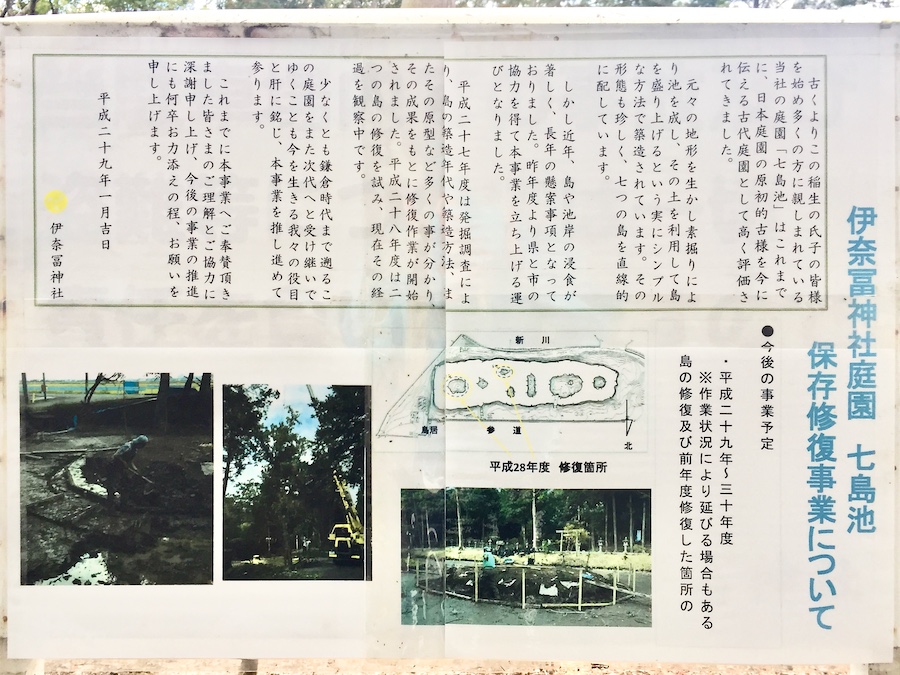 伊奈冨神社庭園 七島池
保存修復事業について
古くよりこの稲生の氏子の皆様
を始め多くの方に親しまれている
当社の庭園「七島池」はこれまで
に、日本庭園の原初的古様を今に
伝える古代庭園として高く評価さ
れてきました。
元々の地形を生かし素掘りによ
り池を成し、その土を利用して島
を盛り上げるという実にシンプル
な方法で築造されています。その
形態も珍しく、七つの島を直線的
に配しています。
しかし近年、島や池岸の浸食が
著しく、長年の懸案事項となって
おりました。昨年度より県と市の
協力を得て本事業を立ち上げる運
びとなりました。
平成二十七年度は発掘調査によ
り、島の築造年代や築造方法、ま
たその原型など多くの事が分かり
その成果をもとに修復作業が開始
されました。平成二十八年度は二
つの島の修復を試み、現在その経
過を観察中です。
少なくとも鎌倉時代まで遡るこ
の庭園をまた次代へと受け継いで
ゆくことも今を生きる我々の役目
と肝に銘じ、本事業を推し進めて
参ります。
これまでに本事業へご奉賛頂き
ました皆さまのご理解とご協力に
深謝申し上げ、今後の事業の推進
にも何卒お力添えの程、お願いを
申し上げます。
平成二十九年一月吉日
伊奈冨神社
●今後の事業予定
・平成二十九年~三十年度
※作業状況により延びる場合もある
島の修復及び前年度修復した箇所の
新川
鳥居
参道
北
平成28年度 修復箇所